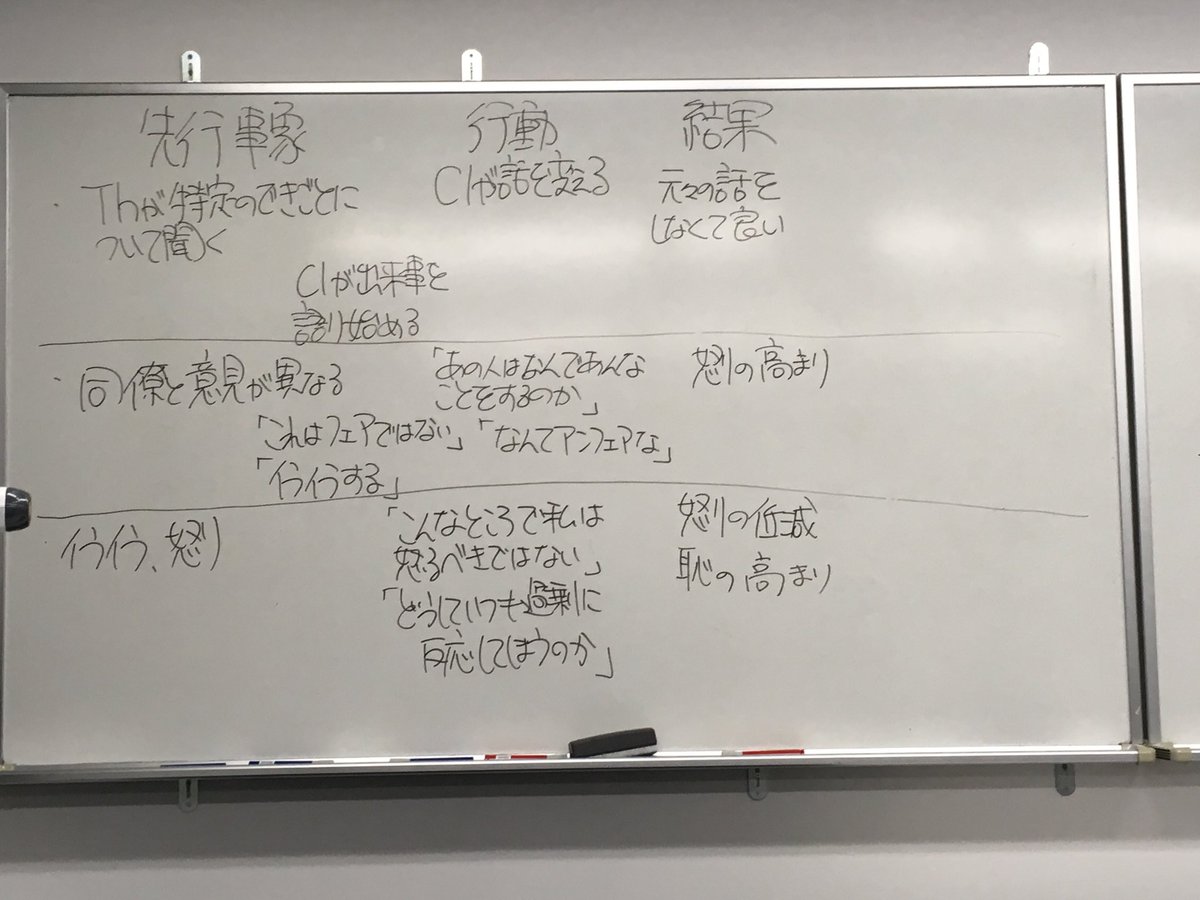 先行事象 行動 結果
・Thが特定のできごとに Clが話を変える 元々の話を
ついて聞く しなくて良い
Clが出来事を
語り始める
・同僚と意見が異なる 「あの人はなんであんな 怒りの高まり
ことをするのか」
「これはフェアではない」「なんてアンフェアな」
「イライラする」
イライラ、怒り 「こんなところで私は 怒りの低減
怒るべきではない」 恥の高まり
「どうしていつも過剰に
反応してしまうのか」